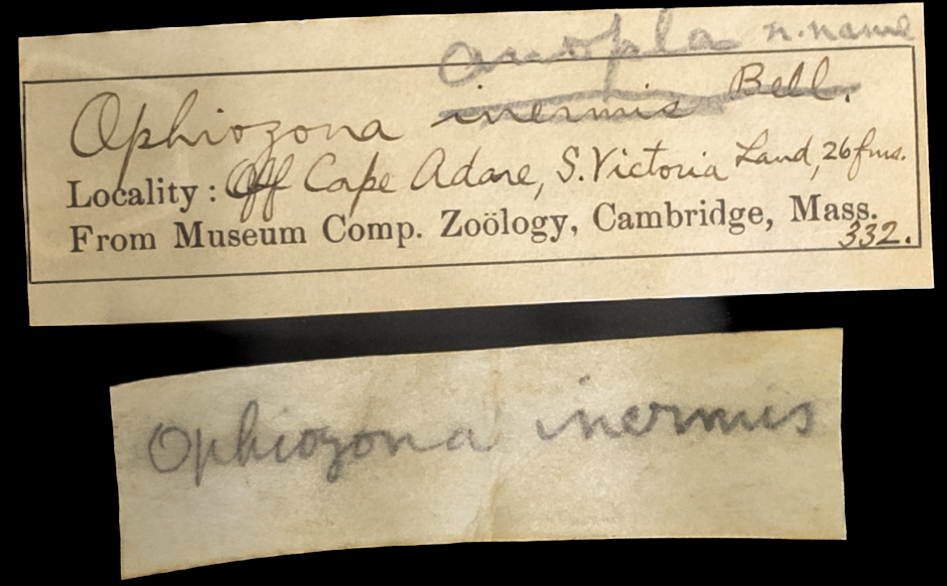 anopla n. name
Ophiozona inermis Bell.
Locality: Off Cape Adare, S. Victoria Land, 26 fms.
From Museum Comp. Zoölogy, Cambridge, Mass.
332.
Ophiozona inermis